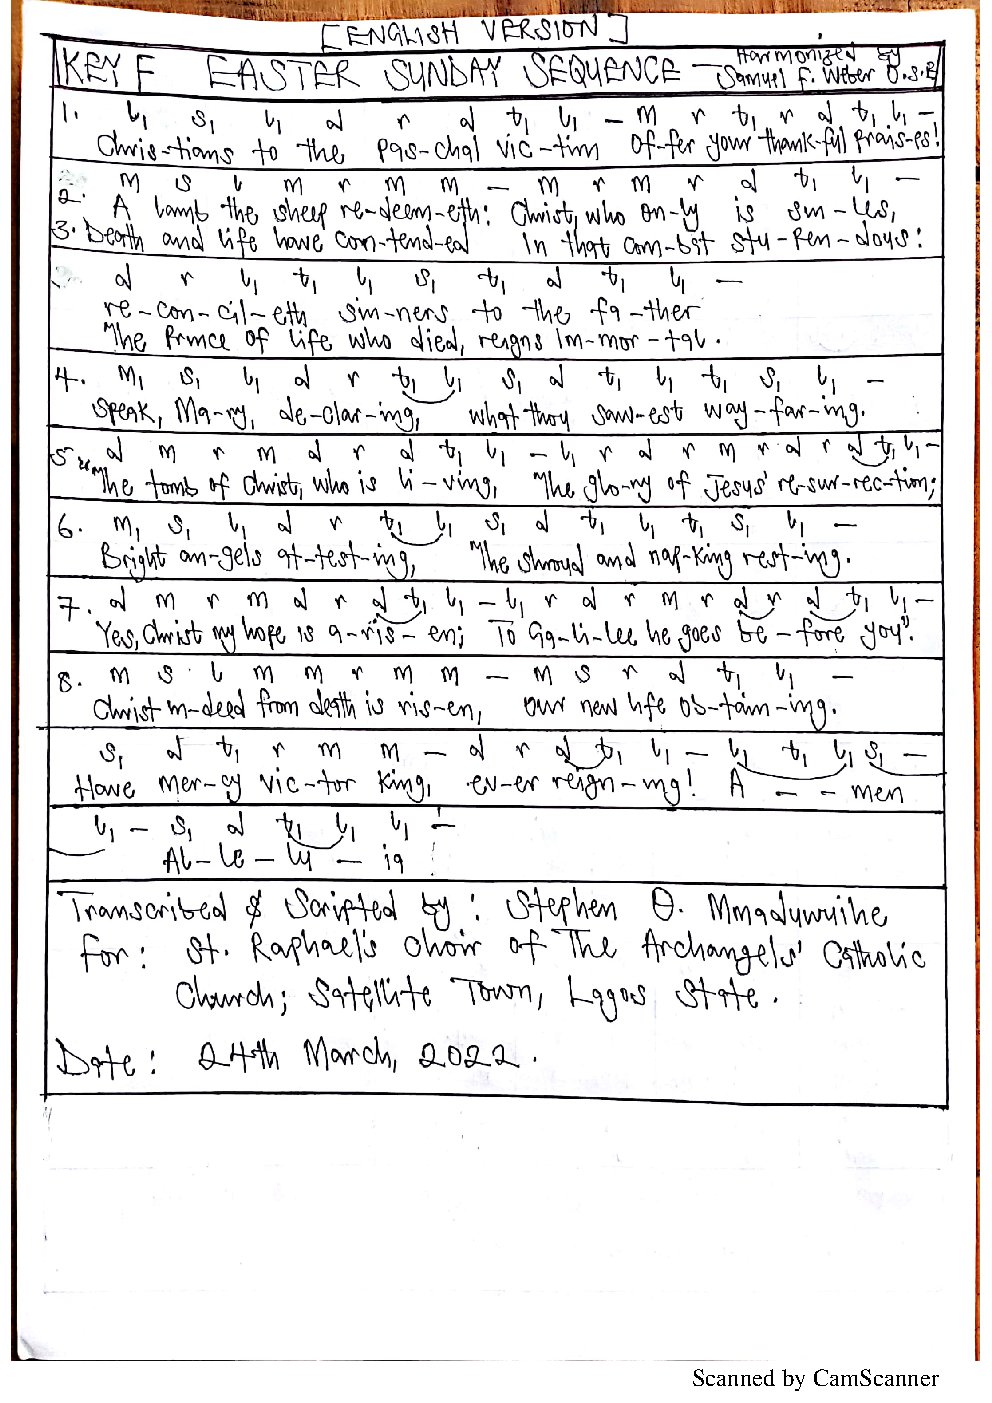 [ENGLISH VERSION]
KEY F EASTER SUNDAY SEQUENCE — Harmonized by
Samuel F. Weber O.S.B
1. l₁ s₁ l₁ d r d t₁ l₁ – m r t₁ r d t₁ l₁ –
Chris-tians to the pas-chal vic-tim Of-fer your thank-ful prais-es!
m s l m r m m – m r m r d t₁ l₁ –
2. A lamb the sheep re-deem-eth: Christ, who on-ly is sin-les,
3. Death and life have con-tend-ed In that com-bat stu-pen-dous:
d r l₁ t₁ l₁ s₁ t₁ d t₁ l₁ –
re-con-cil-eth sin-ners to the fa-ther
The Prince of life who died, reigns Im-mor-tal.
4. m₁ s₁ l₁ d r t₁ l₁ s₁ d t₁ l₁ t₁ s₁ l₁ –
Speak, Ma-ry, de-clar-ing, what thou saw-est way-far-ing.
5. d m r m d r d t₁ l₁ – l₁ r d r m r d r d t₁ l₁ –
"The tomb of Christ, who is li-ving, The glo-ry of Jesus' re-sur-rec-tion;
6. m₁ s₁ l₁ d r t₁ l₁ s₁ d t₁ l₁ t₁ s₁ l₁ –
Bright an-gels at-test-ing, The shroud and nap-king rest-ing.
7. d m r m d r d t₁ l₁ – l₁ r d r m r d r d t₁ l₁ –
Yes, Christ my hope is a-ris-en; To Ga-li-lee he goes be-fore you".
8. m s l m m r m m – m s r d t₁ l₁ –
Christ in-deed from death is ris-en, our new life ob-tain-ing.
s₁ d t₁ r m m – d r d t₁ l₁ – l₁ t₁ l₁ s₁ –
Have mer-cy vic-tor king, ev-er reign-ing! A – – men
l₁ – s₁ d t₁ l₁ l₁ –
Al-le-lu-ia
Transcribed & Scripted by: Stephen O. Mmaduwuihe
For: St. Raphael's choir of The Archangels' Catholic
Church; Satellite Town, Lagos State.
Date: 24th March, 2022.
Scanned by CamScanner